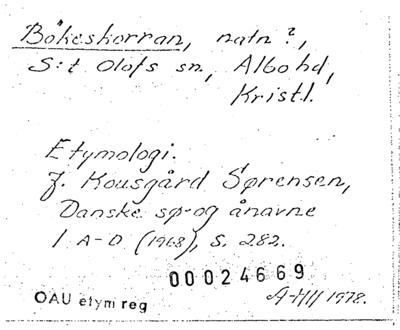 Bökeskorran, natn?,
S:t Olofs sn, Albo hd,
Kristl.
Etymologi.
J. Kousgård Sørensen,
Danske sø- og ånavne
1 A-D (1968), s. 282.
00024669
OAU etym reg
1978.